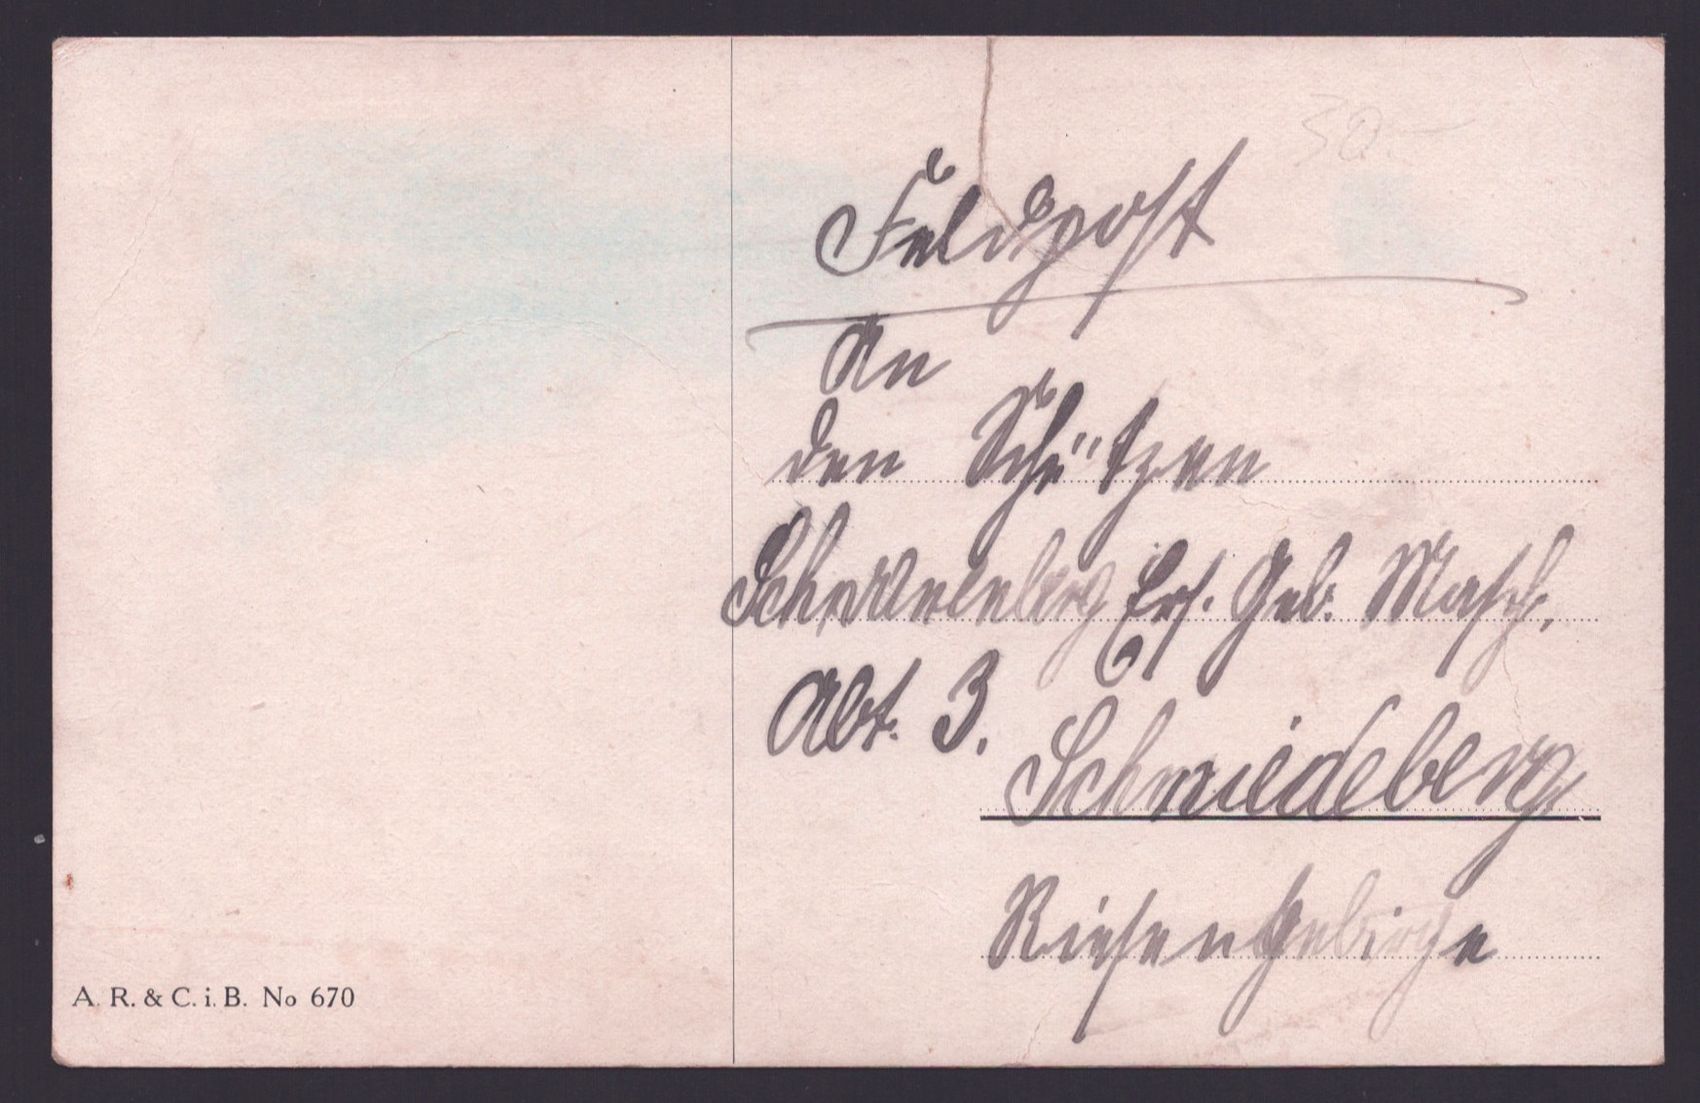 30.-
Feldpost
An
den Schützen
Ers. Geb. Masch.
Abt. 3.
Schmiedeberg
Riesengebirge
A. R. & C. i. B. No 670